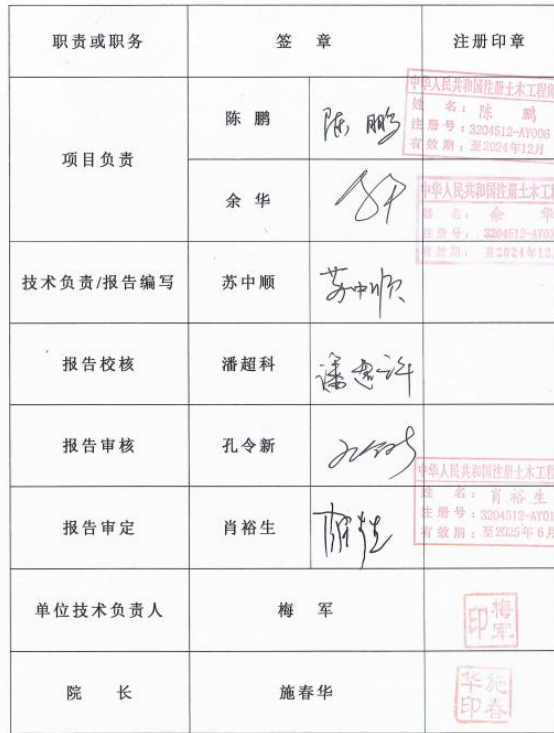 职责或职务 签 章 注册印章
项目负责
陈 鹏 陈鹏
中华人民共和国注册土木工程师
姓 名：陈 鹏
注册号：3204512-AY006
有效期：至2024年12月
余 华 余华
中华人民共和国注册土木工程
姓 名：余 华
注册号：3204512-AY0
有效期：至2024年12
技术负责/报告编写 苏中顺 苏中顺
报告校核 潘超科
报告审核 孔令新 孔令新
报告审定 肖裕生
中华人民共和国注册土木工程
姓 名：肖裕生
注册号：3204512-AY01
有效期：至2025年6月
单位技术负责人 梅 军 梅军印
院 长 施春华 施春华印